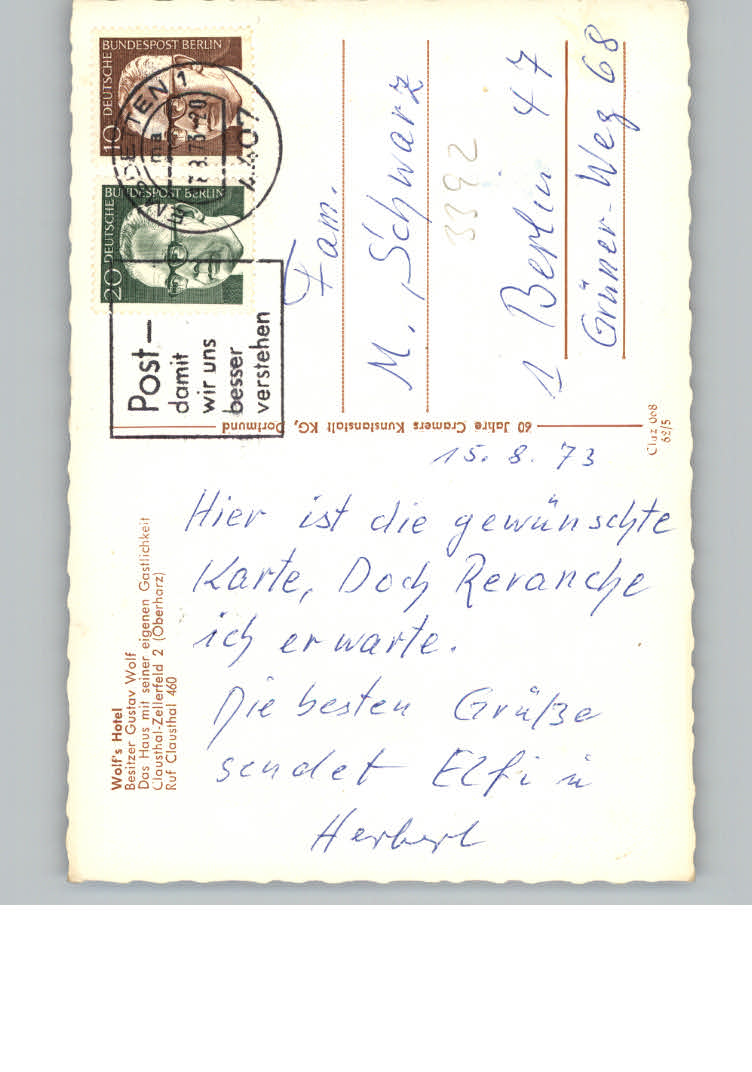 Wolf's Hotel
Besitzer Gustav Wolf
Das Haus mit seiner eigenen Gastlichkeit
Clausthal-Zellerfeld 2 (Oberharz)
Ruf Clausthal 460
15. 8. 73
Hier ist die gewünschte
Karte, Doch Revanche
ich erwarte.
Die besten Grüße
sendet Elfi u
Herbert
60 Jahre Cramers Kunstanstalt KG, Dortmund
Cluz 008
62/5
DEUTSCHE BUNDESPOST BERLIN
10
DEUTSCHE BUNDESPOST BERLIN
20
4407
EMSDETTEN 1
8.73-20
Post—
damit
wir uns
besser
verstehen
Fam.
M. Schwarz
3392
1 Berlin 47
Grüner-Weg 68